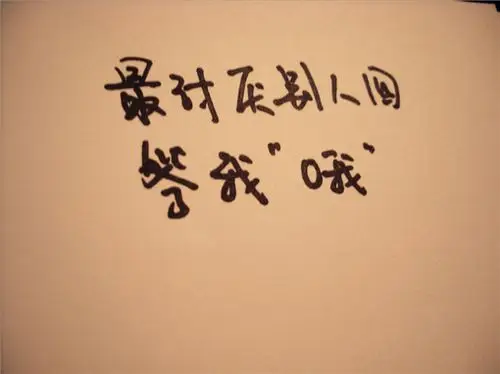 最讨厌别人回
答我“哦”